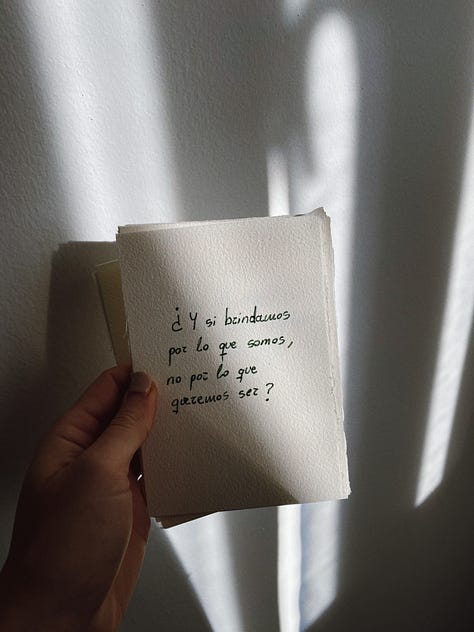 ¿Y si brindamos
por lo que somos,
no por lo que
queremos ser?